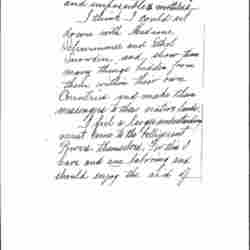 and impossible
I think I could sit
down with Madame
Schwimmer and Ethel
Snowden, and show them
many things hidden from
them within their own
Countries and make them
messengers to their native lands.
I feel a larger understanding
must come to the belligerent
Powers themselves. For this I
have and am laboring and
should enjoy the aid of